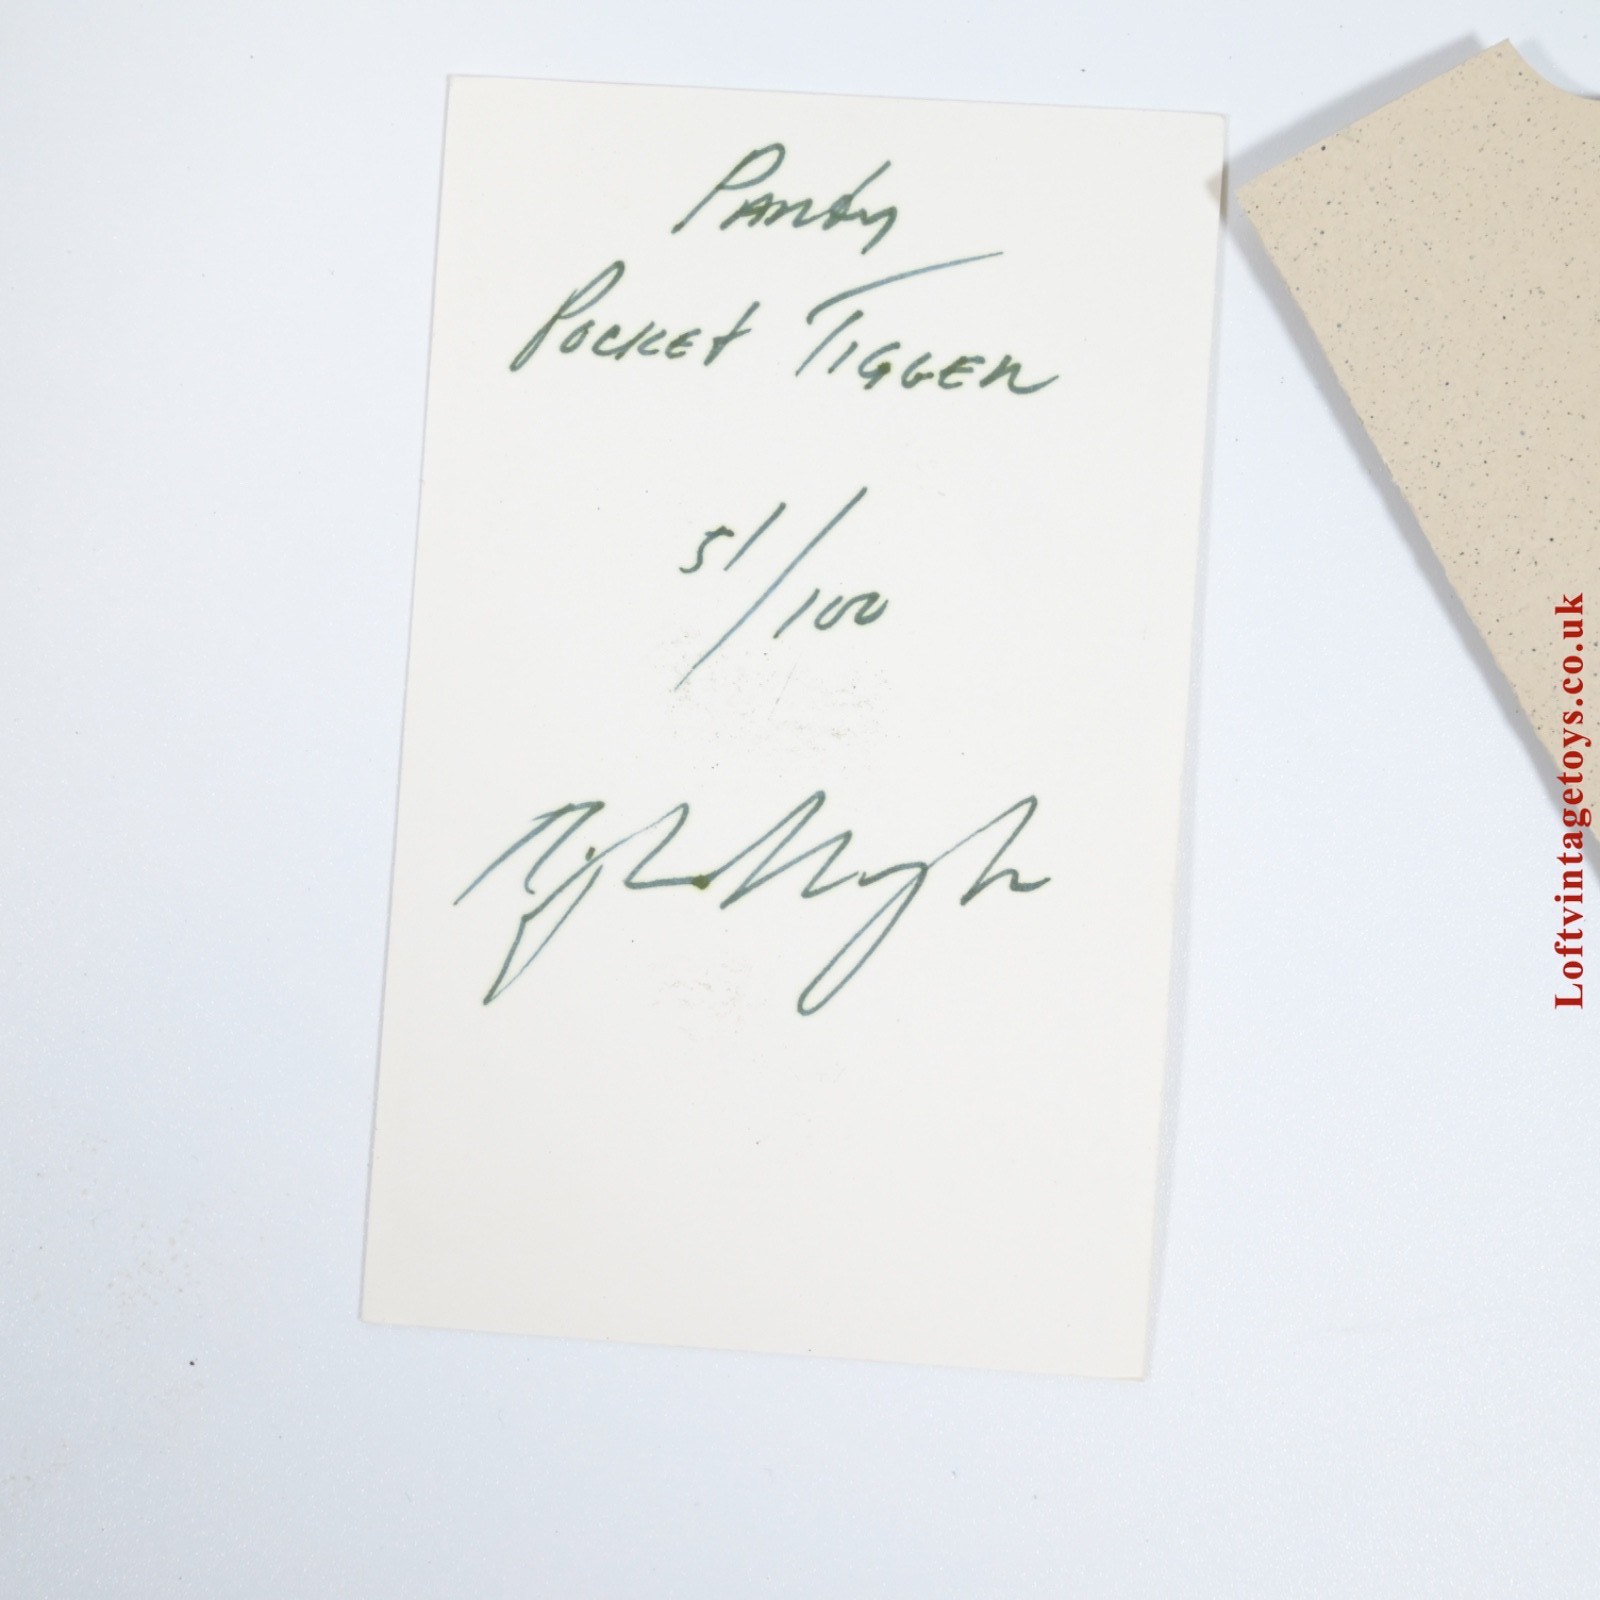 Pandy
Pocket Tigger
51/100
Loftvintagetoys.co.uk